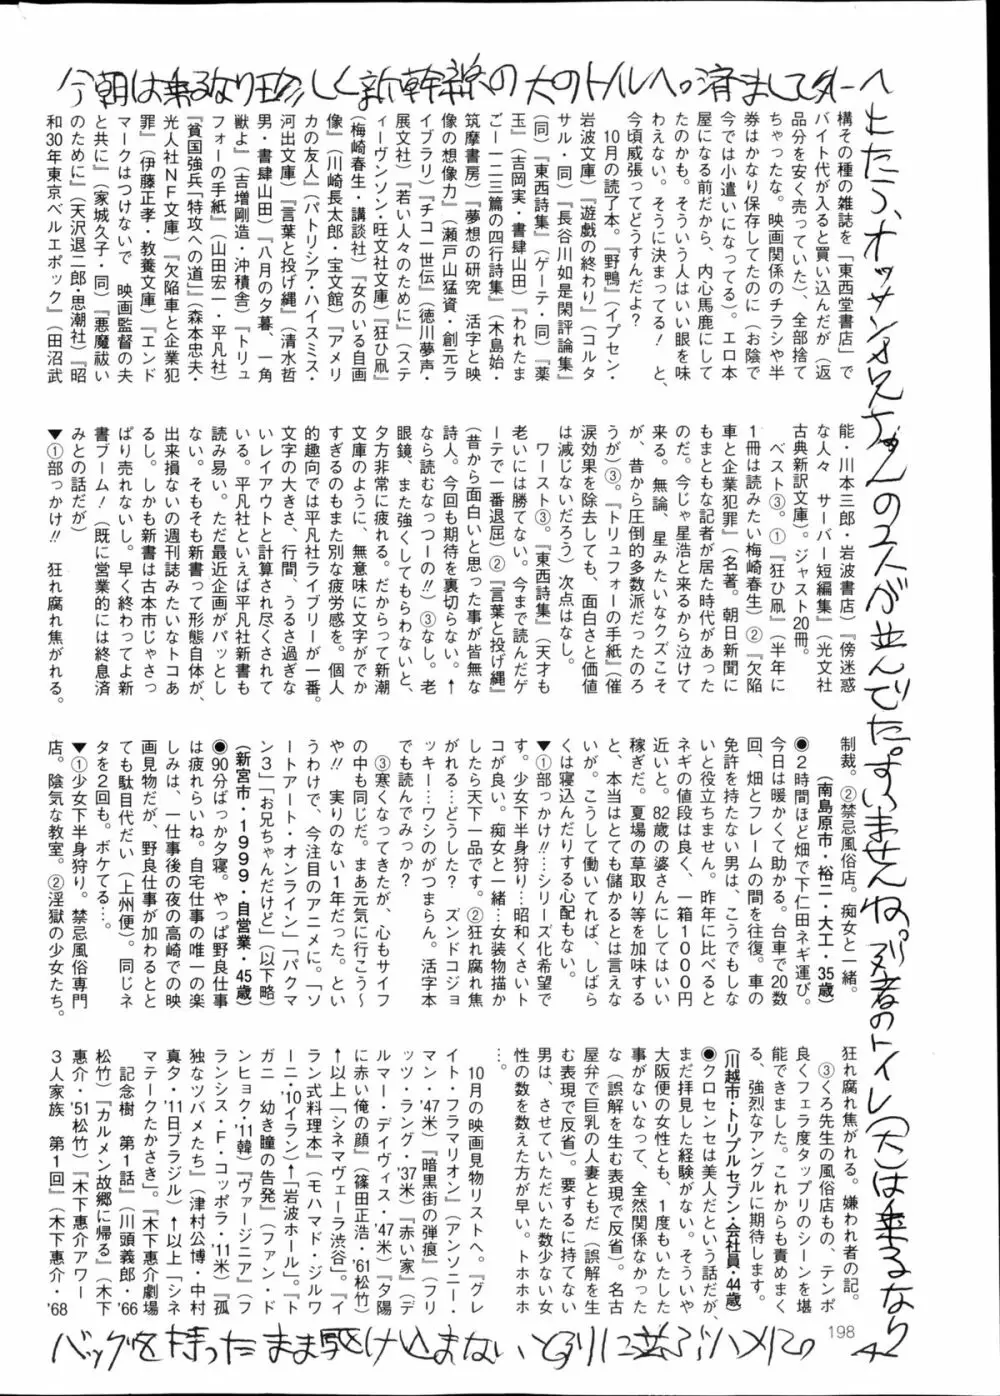 今朝は来るなり珍しく新幹線の大のトイレへ。済ましてター へ
構その種の雑誌を「東西堂書店」で
バイト代が入ると買い込んだが（返
品分を安く売っていた）、全部捨て
ちゃったな。映画関係のチラシや半
券はかなり保存してたのに（お陰で
今では小遣いになってる）。エロ本
屋になる前だから、内心馬鹿にして
たのかも。そういう人はいい眼を味
わえない。そうに決まってる！　と、
今頃威張ってどうすんだよ？
　10月の読了本。『野鴨』（イプセン・
岩波文庫）『遊戯の終わり』（コルタ
サル・同）『長谷川如是閑評論集』
（同）『東西詩集』（ゲーテ・同）『薬
玉』（吉岡実・書肆山田）『われたま
ご一一二三篇の四行詩集』（木島始・
筑摩書房）『夢想の研究　活字と映
像の想像力』（瀬戸山猛資・創元ラ
イブラリ）『チコ一世伝』（徳川夢声・
展文社）『若い人々のために』（ステ
ィーヴンソン・旺文社文庫）『狂ひ凧』
（梅崎春生・講談社）『女のいる自画
像』（川崎長太郎・宝文館）『アメリ
カの友人』（パトリシア・ハイスミス・
河出文庫）『言葉と投げ縄』（清水哲
男・書肆山田）『八月の夕暮、一角
獣よ』（吉増剛造・沖積舎）『トリュ
フォーの手紙』（山田宏一・平凡社）
『貧国強兵「特攻への道」』（森本忠夫・
光人社ＮＦ文庫）『欠陥車と企業犯
罪』（伊藤正孝・教養文庫）『エンド
マークはつけないで　映画監督の夫
と共に』（家城久子・同）『悪魔祓い
のために』（天沢退二郎・思潮社）『昭
和30年東京ベルエポック』（田沼武
能・川本三郎・岩波書店）『傍迷惑
な人々　サーバー短編集』（光文社
古典新訳文庫）。ジャスト20冊。
　ベスト③。①『狂ひ凧』（半年に
１冊は読みたい梅崎春生）②『欠陥
車と企業犯罪』（名著。朝日新聞に
もまともな記者が居た時代があった
のだ。今じゃ星浩と来るから泣けて
来る。無論、星みたいなクズこそ
が、昔から圧倒的多数派だったのろ
うが）③。『トリュフォーの手紙』（催
涙効果を除去しても、面白さと価値
は減じないだろう）次点はなし。
　ワースト③。『東西詩集』（天才も
老いには勝てない。今まで読んだゲ
ーテで一番退屈）②『言葉と投げ縄』
（昔から面白いと思った事が皆無な
詩人。今回も期待を裏切らない。↑
なら読むなっつーの!!）③なし。老
眼鏡、また強くしてもらわないと、
夕方非常に疲れる。だからって新潮
文庫のように、無意味に文字がでか
すぎるのもまた別な疲労感を。個人
的趣向では平凡社ライブリーが一番。
文字の大きさ、行間、うるさ過ぎな
いレイアウトと計算され尽くされて
いる。平凡社といえば平凡社新書も
読み易い。ただ最近企画がパッとし
ない。そもそも新書って形態自体が、
出来損ないの週刊誌みたいなトコあ
るし。しかも新書は古本市じゃさっ
ぱり売れないし。早く終わってよ新
書ブーム！（既に営業的には終息済
みとの話だが）
▼①部っかけ!!　狂れ腐れ焦がれる。
制裁。②禁忌風俗店。痴女と一緒。
（南島原市・裕二・大工・35歳）
●２時間ほど畑で下仁田ネギ運び。
今日は暖かくて助かる。台車で20数
回、畑とフレームの間を往復。車の
免許を持たない男は、こうでもしな
いと役立ちません。昨年に比べると
ネギの値段は良く、一箱１０００円
近いと。82歳の婆さんにしてはいい
稼ぎだ。夏場の草取り等を加味する
と、本当はとても儲かるとは言えな
いが。こうして働いてれば、しばら
くは寝込んだりする心配もない。
▼①部っかけ!!…シリーズ化希望で
す。少女下半身狩り…昭和くさいト
コが良い。痴女と一緒…女装物描か
したら天下一品です。②狂れ腐れ焦
がれる…どうした？　ズンドコジョ
ッキー…ワシのがつまらん。活字本
でも読んでみっか？
　③寒くなってきたが、心もサイフ
の中も同じだ。まあ元気に行こう～
や!!　実りのない１年だった。とい
うわけで、今注目のアニメに。「ソ
ードアート・オンライン」「バクマ
ン３」「お兄ちゃんだけど」（以下略）
（新宮市・１９９９・自営業・45歳）
●90分ばっか夕寝。やっぱ野良仕事
は疲れらいね。自宅仕事の唯一の楽
しみは、一仕事後の夜の高崎での映
画見物だが、野良仕事が加わるとと
ても駄目代だい（上州便）。同じネ
タを２回も。ボケてる…。
▼①少女下半身狩り。禁忌風俗専門
店。陰気な教室。②淫獄の少女たち。
狂れ腐れ焦がれる。嫌われ者の記。
　③くろ先生の風俗店もの、テンポ
良くフェラ度タップリのシーンを堪
能できました。これからも責めまく
る、強烈なアングルに期待します。
（川越市・トリプルセブン・会社員・44歳）
●クロセンセは美人だという話だが、
まだ拝見した経験がない。そういや
大阪便の女性とも、１度もいたした
事がないなって、全然関係なかった
な（誤解を生む表現で反省）。名古
屋弁で巨乳の人妻ともだ（誤解を生
む表現で反省）。要するに持てない
男は、させていただいた数少ない女
性の数を数えた方が早い。トホホホ
…。
　10月の映画見物リストへ。『グレ
イト・フラマリオン』（アンソニー・
マン・'47米）『暗黒街の弾痕』（フリ
ッツ・ラング・'37米）『赤い家』（デ
ルマー・デイヴィス・'47米）『夕陽
に赤い俺の顔』（篠田正浩・'61松竹）
↑以上「シネマヴェーラ渋谷」。『イ
ラン式料理本』（モハマド・ジルワ
ーニ・'10イラン）↑「岩波ホール」。『ト
ガニ　幼き瞳の告発』（ファン・ド
ンヒョク・'11韓）『ヴァージニア』（フ
ランシス・F・コッポラ・'11米）『孤
独なツバメたち』（津村公博・中村
真夕・'11日ブラジル）↑以上「シネ
マテークたかさき」。『木下惠介劇場
　記念樹　第１話』（川頭義郎・'66
松竹）『カルメン故郷に帰る』（木下
惠介・'51松竹）『木下惠介アワー
３人家族　第１回』（木下惠介・'68
とたら、オッサンと兄ちゃんの2人が並んでた。すいませんね。列者のトイレ(大)は来るなり
バッグを持ったまま駆け込まないと
198